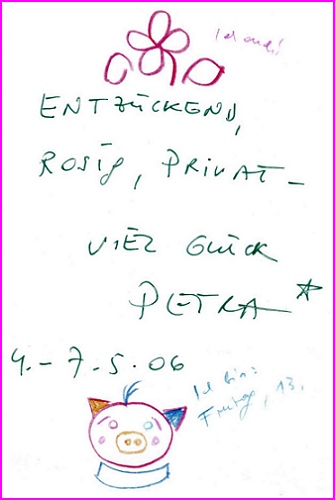 Ich auch!
ENTZÜCKEND,
ROSIG, PRIVAT -
VIEL GLÜCK
PETRA
4. - 7.5.06
Ich bin:
Freitag, 13.